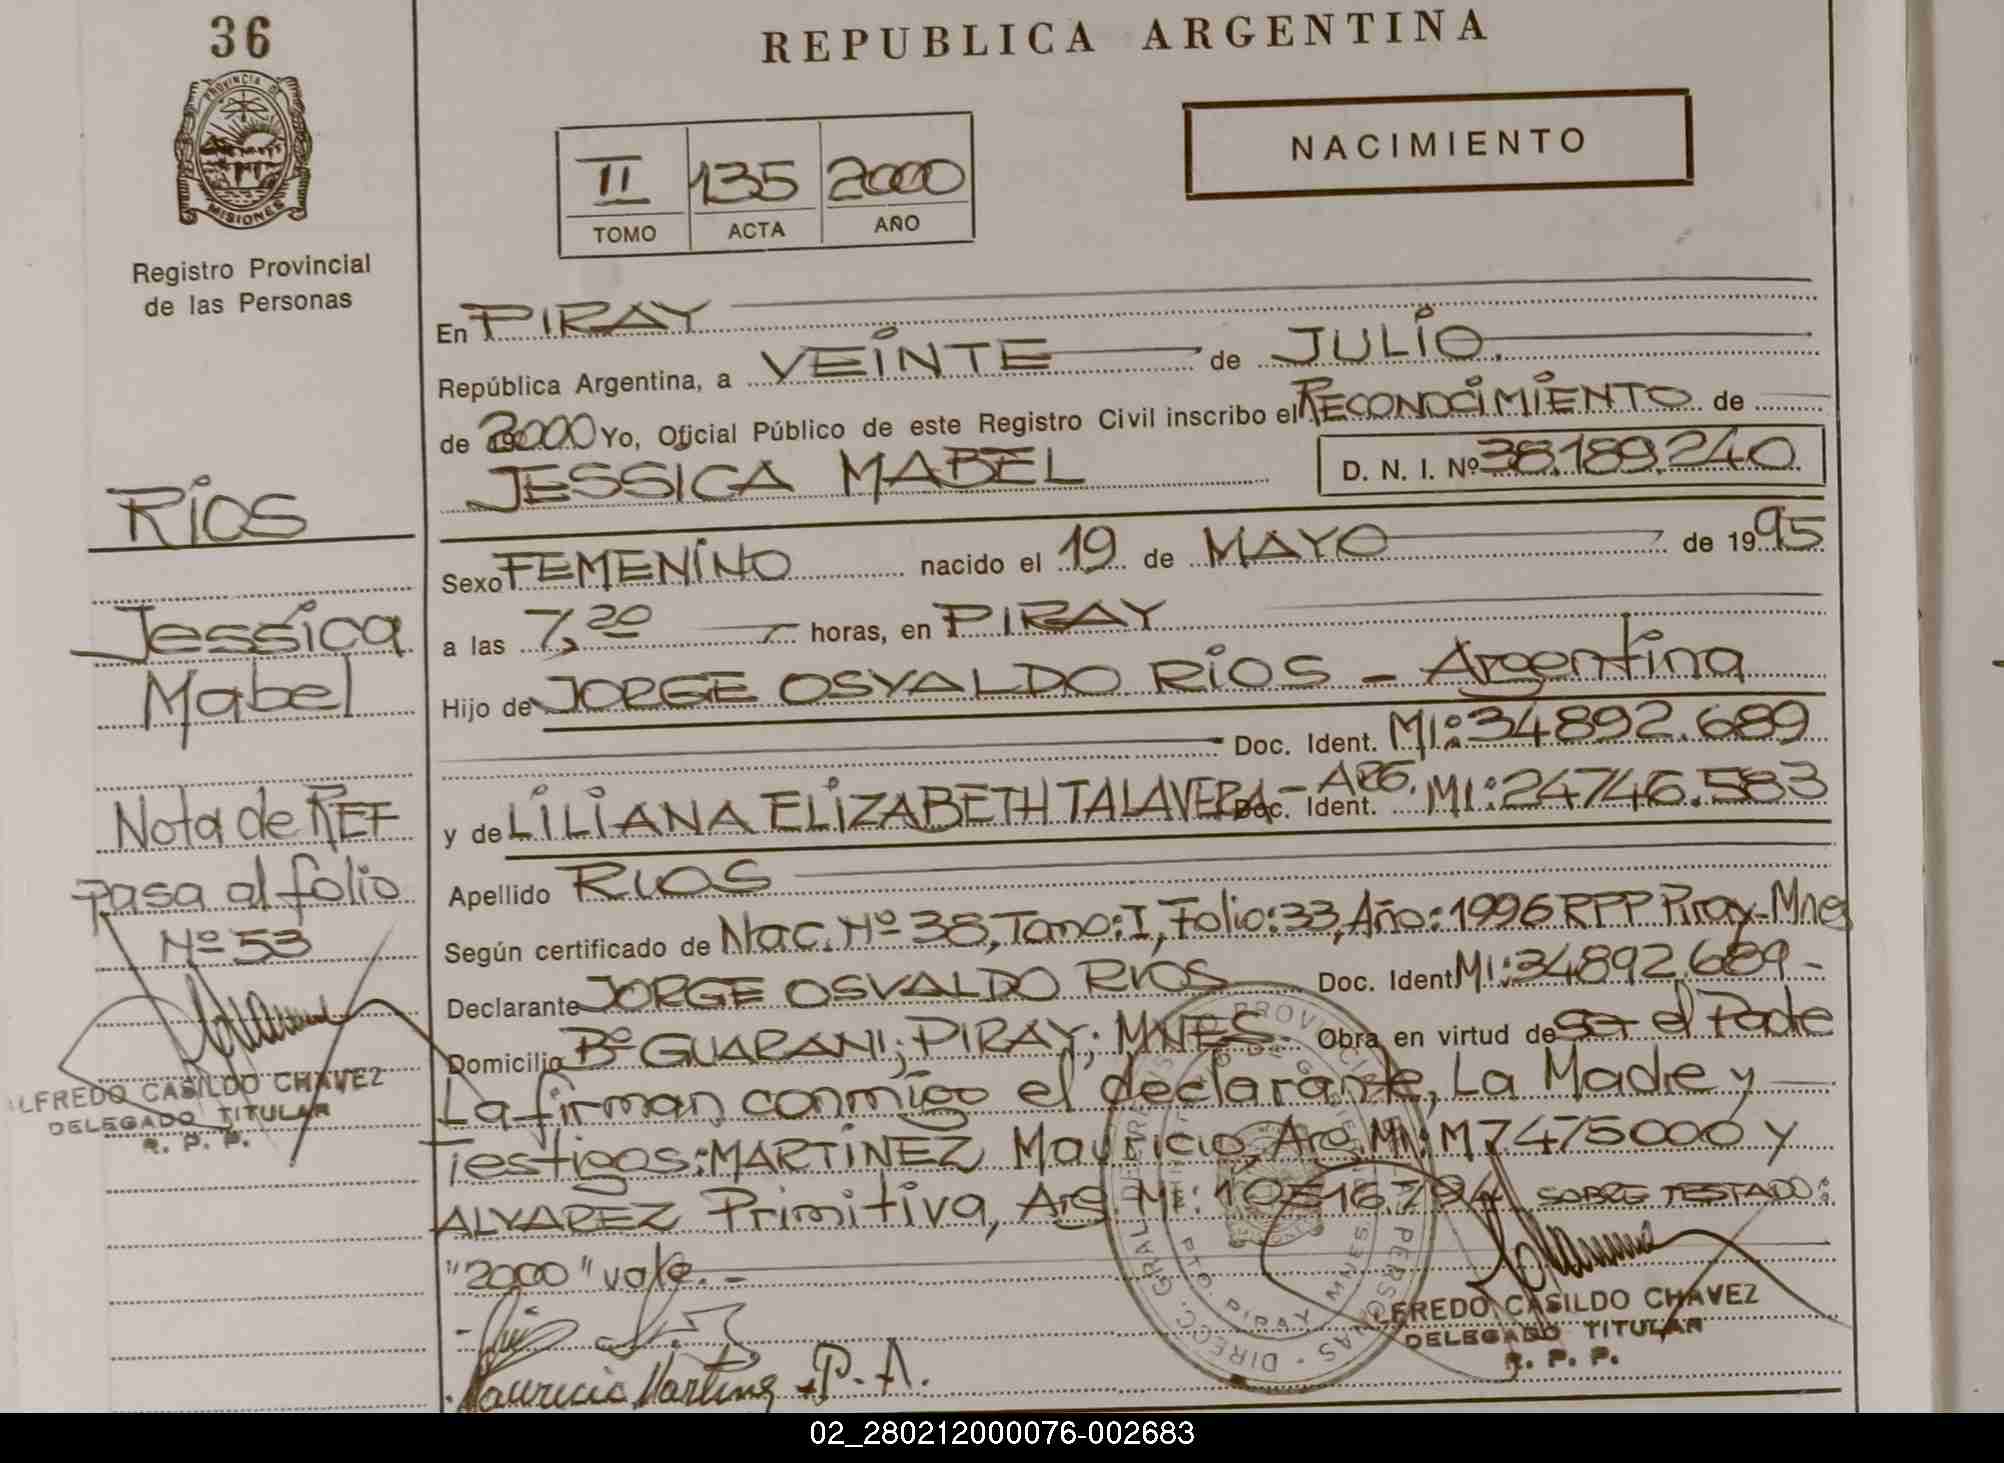 36
PROVINCIA DE
MISIONES
Registro Provincial
de las Personas
REPUBLICA ARGENTINA
II 135 2000
TOMO ACTA AÑO
NACIMIENTO
En PIRAY
República Argentina, a VEINTE de JULIO.
de 2000 Yo, Oficial Público de este Registro Civil inscribo el RECONOCIMIENTO de
JESSICA MABEL D. N. I. Nº 38.189.240
Sexo FEMENINO nacido el 19 de MAYO de 1995
a las 7,20 horas, en PIRAY
Hijo de JORGE OSVALDO RIOS - Argentina
Doc. Ident. MI: 34892.689
y de LILIANA ELIZABETH TALAVERA - ARG. Doc. Ident. MI: 24746.583
Apellido RIOS
Según certificado de Nac. Nº 38, Tomo: I, Folio: 33, Año: 1996 RPP Piray-Mnes
Declarante JORGE OSVALDO RIOS Doc. Ident MI: 34892.689 -
Domicilio Bº GUARANI; PIRAY; MNES. Obra en virtud de ser el Padre
La firman conmigo el declarante, La Madre y
Testigos: MARTINEZ Mauricio, Arg. MI: M7475000 y
ALVAREZ Primitiva, Arg. MI: SOBRE TESTADO:
"2000" vale. -
Mauricio Martinez P. A.
ALFREDO CASILDO CHAVEZ
DELEGADO TITULAR
R. P. P.
RIOS
Jessica
Mabel
Nota de REF
pasa al folio
Nº 53
ALFREDO CASILDO CHAVEZ
DELEGADO TITULAR
R. P. P.
02_280212000076-002683